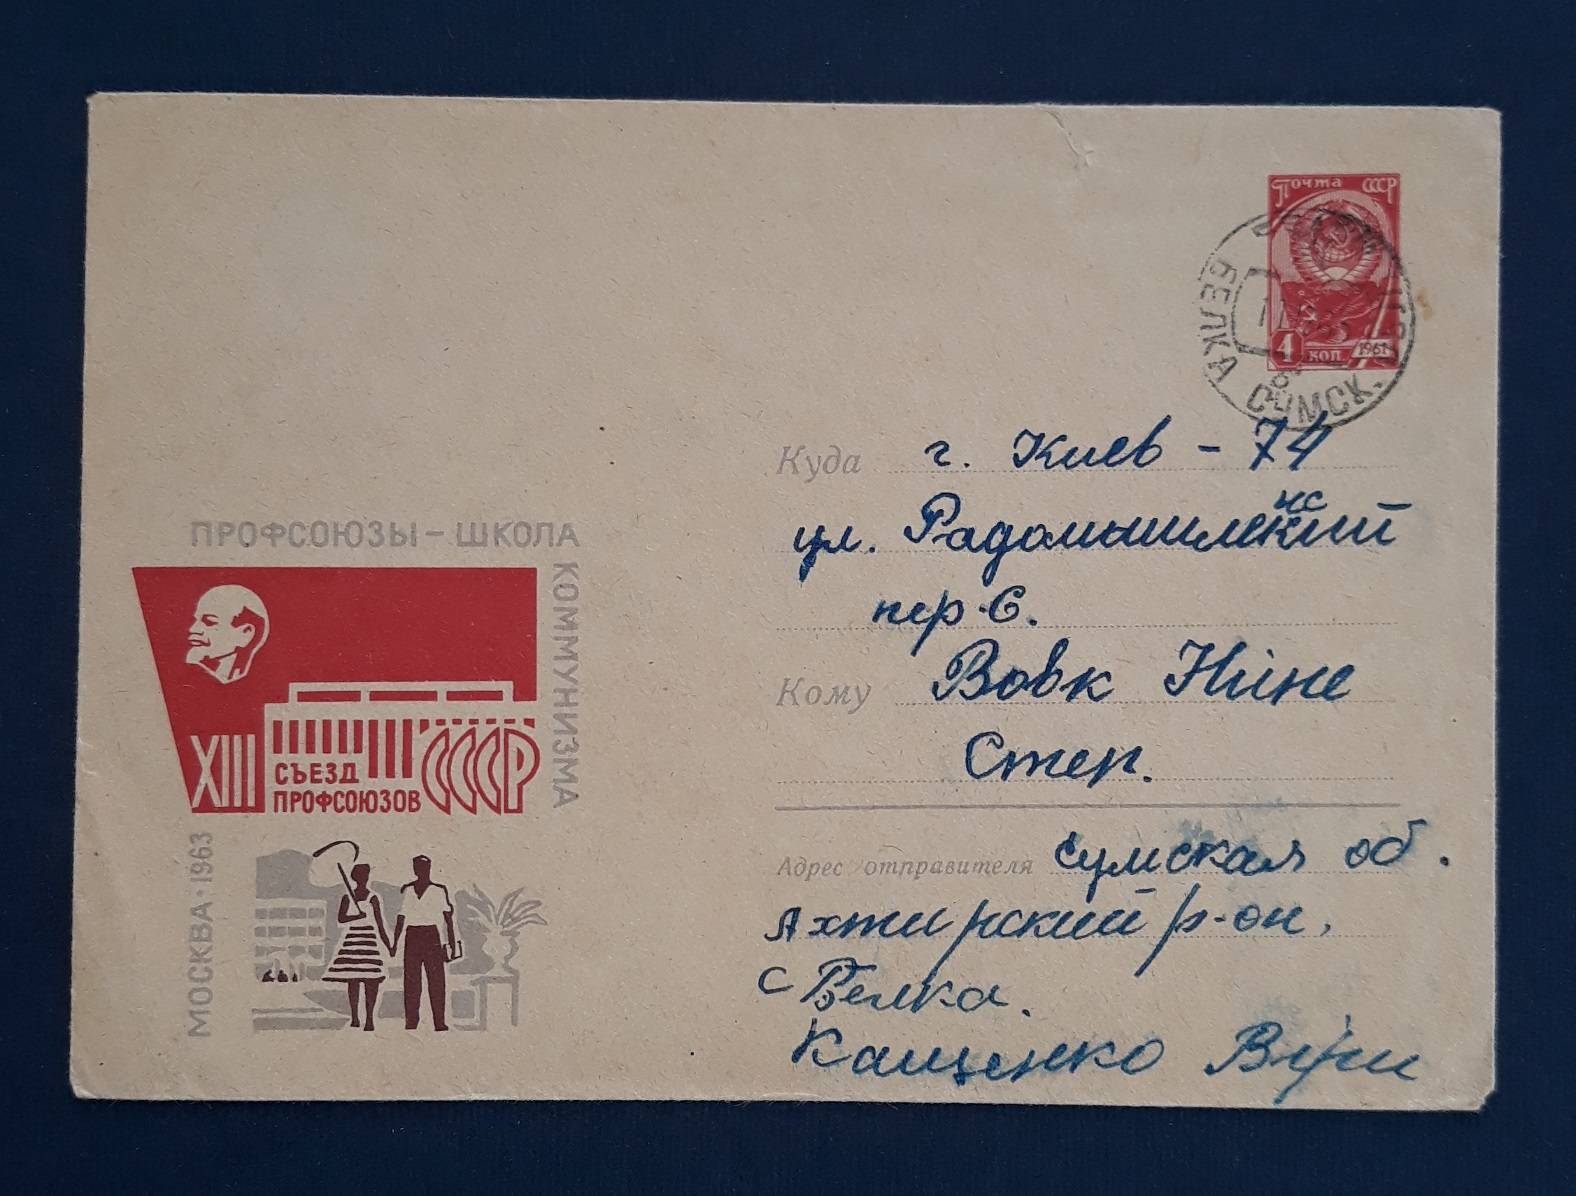 Почта СССР
4 коп 1961
БЕЛКА СУМСК.
Куда г. Киев - 74
ул. Радомышлекий
нс
пер. 6.
Кому Вовк Ніне
Степ.
Адрес отправителя Сумская об.
Ахтирский р-он.
с Белка.
Кащенко Віри
ПРОФСОЮЗЫ – ШКОЛА
КОММУНИЗМА
XIII
СЪЕЗД
ПРОФСОЮЗОВ
СССР
МОСКВА · 1963